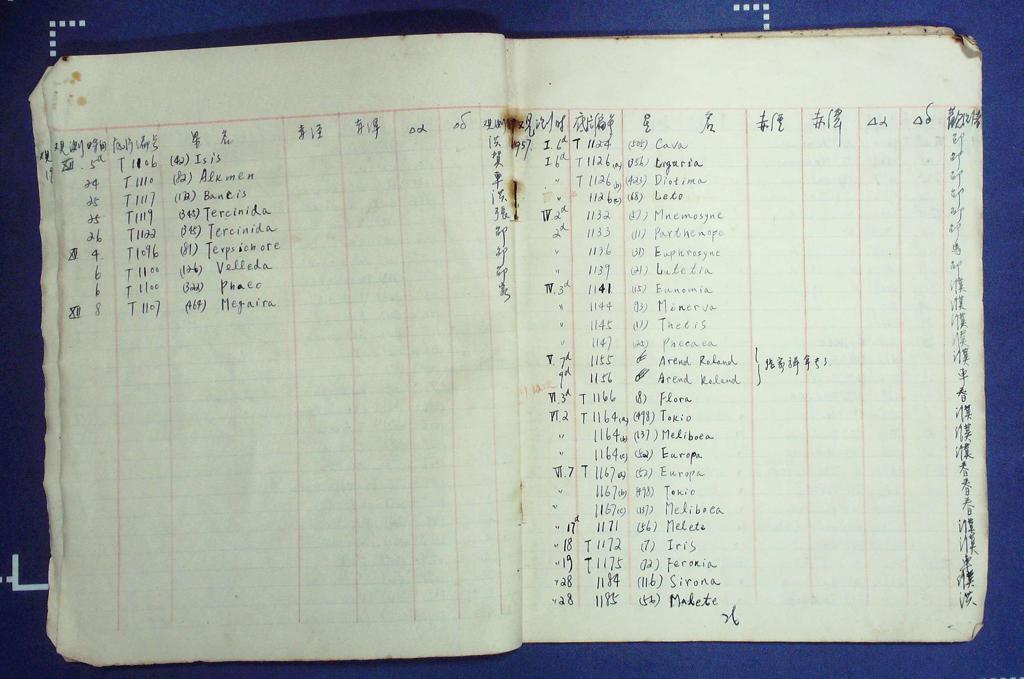 观测时间 底片编号 星名 赤经 赤纬 Δα Δδ 观测
XII 5d T1106 (42) Isis 洪
24 T1110 (82) Alkmen 贺
25 T1117 (172) Baucis 車
25 T1119 (345) Tercinida 洪
26 T1122 (345) Tercinida 張
XI 4 T1096 (81) Terpsichore 邵
6 T1100 (126) Velleda 邵
6 T1100 (322) Phaeo 邵
XII 8 T1107 (464) Megaira
观测时 底片编号 星名 赤经 赤纬 Δα Δδ
1957. I.6d T1124 (505) Cava 邵
I 6d T1126(a) (356) Liguria 邵
〃 T1126(b) (423) Diotima 邵
〃 1126(c) (68) Leto 邵
IV.2d 1132 (57) Mnemosyne 邵
2d 1133 (11) Parthenope 邵
〃 1136 (31) Euphrosyne
〃 1139 (21) Lutetia 邵
IV.3d 1141 (15) Eunomia 濮
〃 1144 (93) Minerva 濮
〃 1145 (17) Thetis 濮
〃 1147 (25) Phocaea 濮
V. 7d 1155 Arend Roland 濮
9d 1156 Arend Roland 車
VI.3d T1166 (8) Flora 春
VI.2 T1164(a) (498) Tokio 濮
〃 1164(b) (137) Meliboea 濮
〃 1164(c) (52) Europa 濮
VI.7 T1167(a) (52) Europa 春
〃 1167(b) (498) Tokio 春
〃 1167(c) (137) Meliboea 春
〃 17d 1171 (56) Melete 濮
〃 18 T1172 (7) Iris
〃 19 T1175 (72) Feronia 車
〃 28 1184 (116) Sirona 濮
〃 28 1185 (56) Malete 洪
26